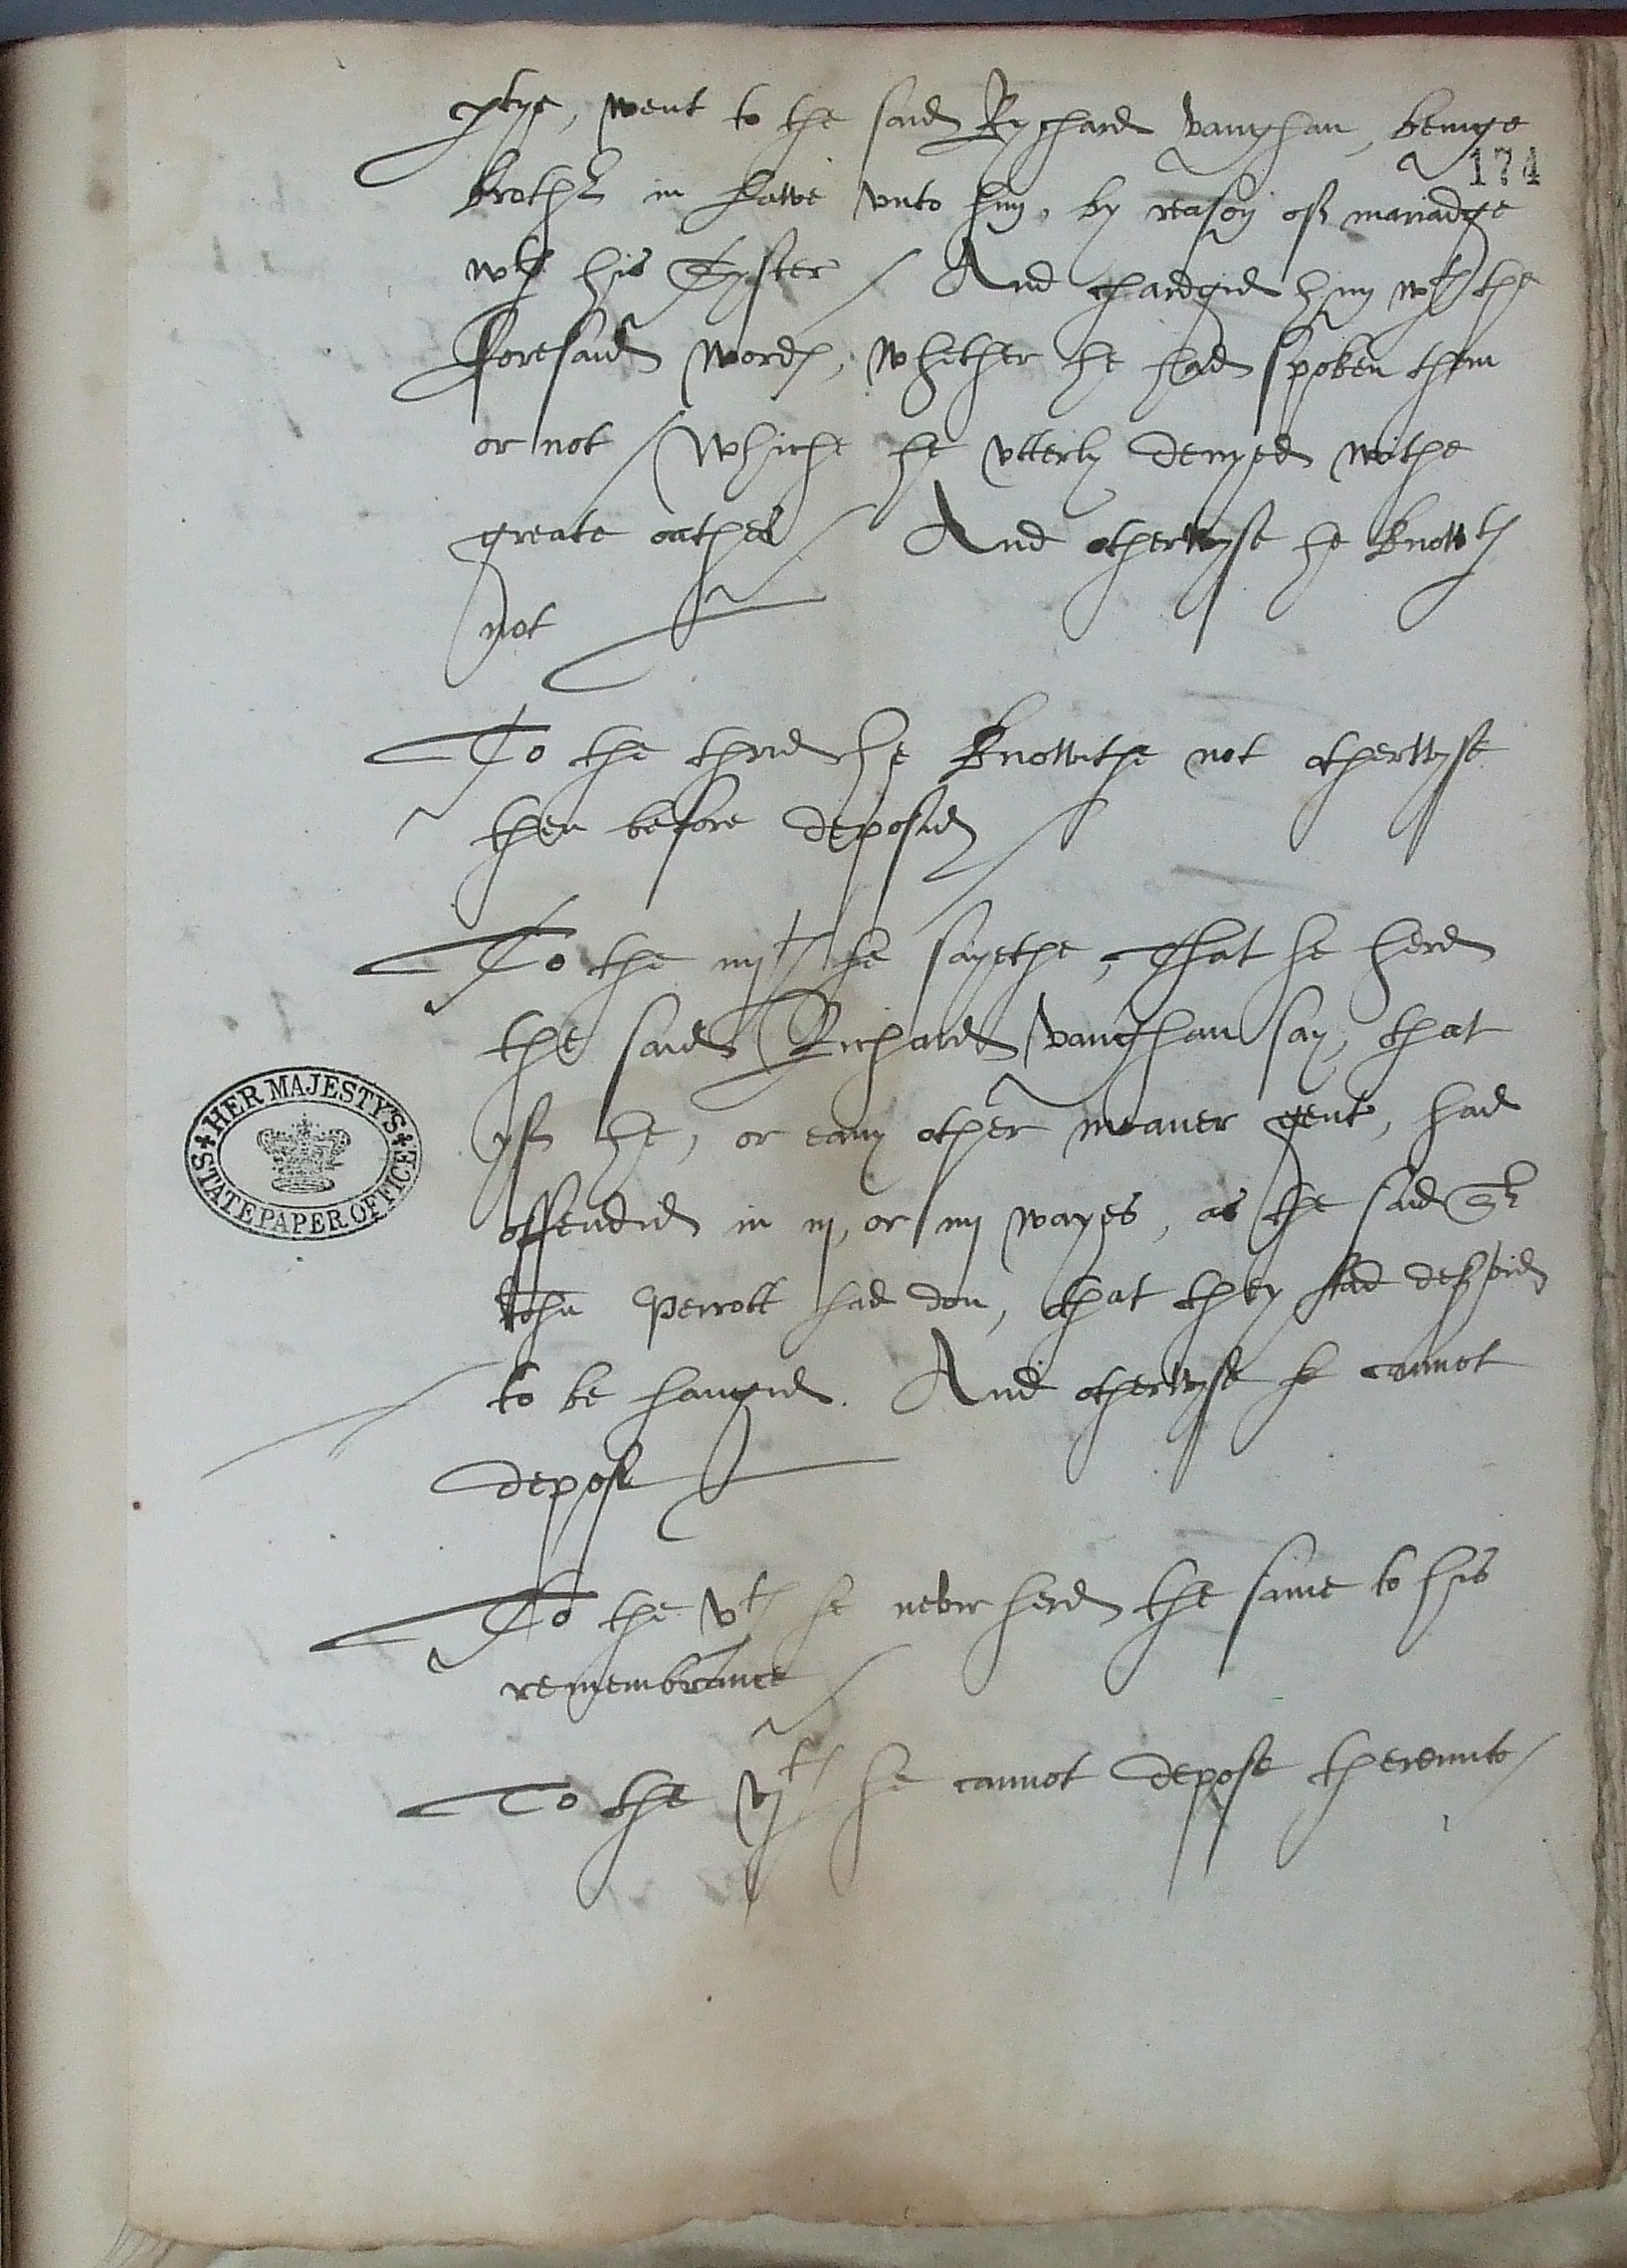 ptye, went to the said Rychard vaughan, beinge
174
brother in Lawe vnto hym, by reason of mariadge
wth his Syster / And chardgid hym wth the
foresaid words, whether he had spoken them
or not / Whiche he vtterly denyed withe
greate oathes / And otherwyse he knowth
not
To the thrid he knowithe not otherwyse
then before deposid /
To the iiijth he sayethe, That he herd
the said Richard vaughan say, that
yf he, or eany other meaner gent, had
offendid in iij, or iiij wayes, as the said Sr
John Perrott had don, that they had
to be hangid. And otherwyse he cannot
depose
To the vth he never herd the same to his
remembrance /
To the vjth he cannot depose thereunto /
HER MAJESTY'S
STATE PAPER OFFICE